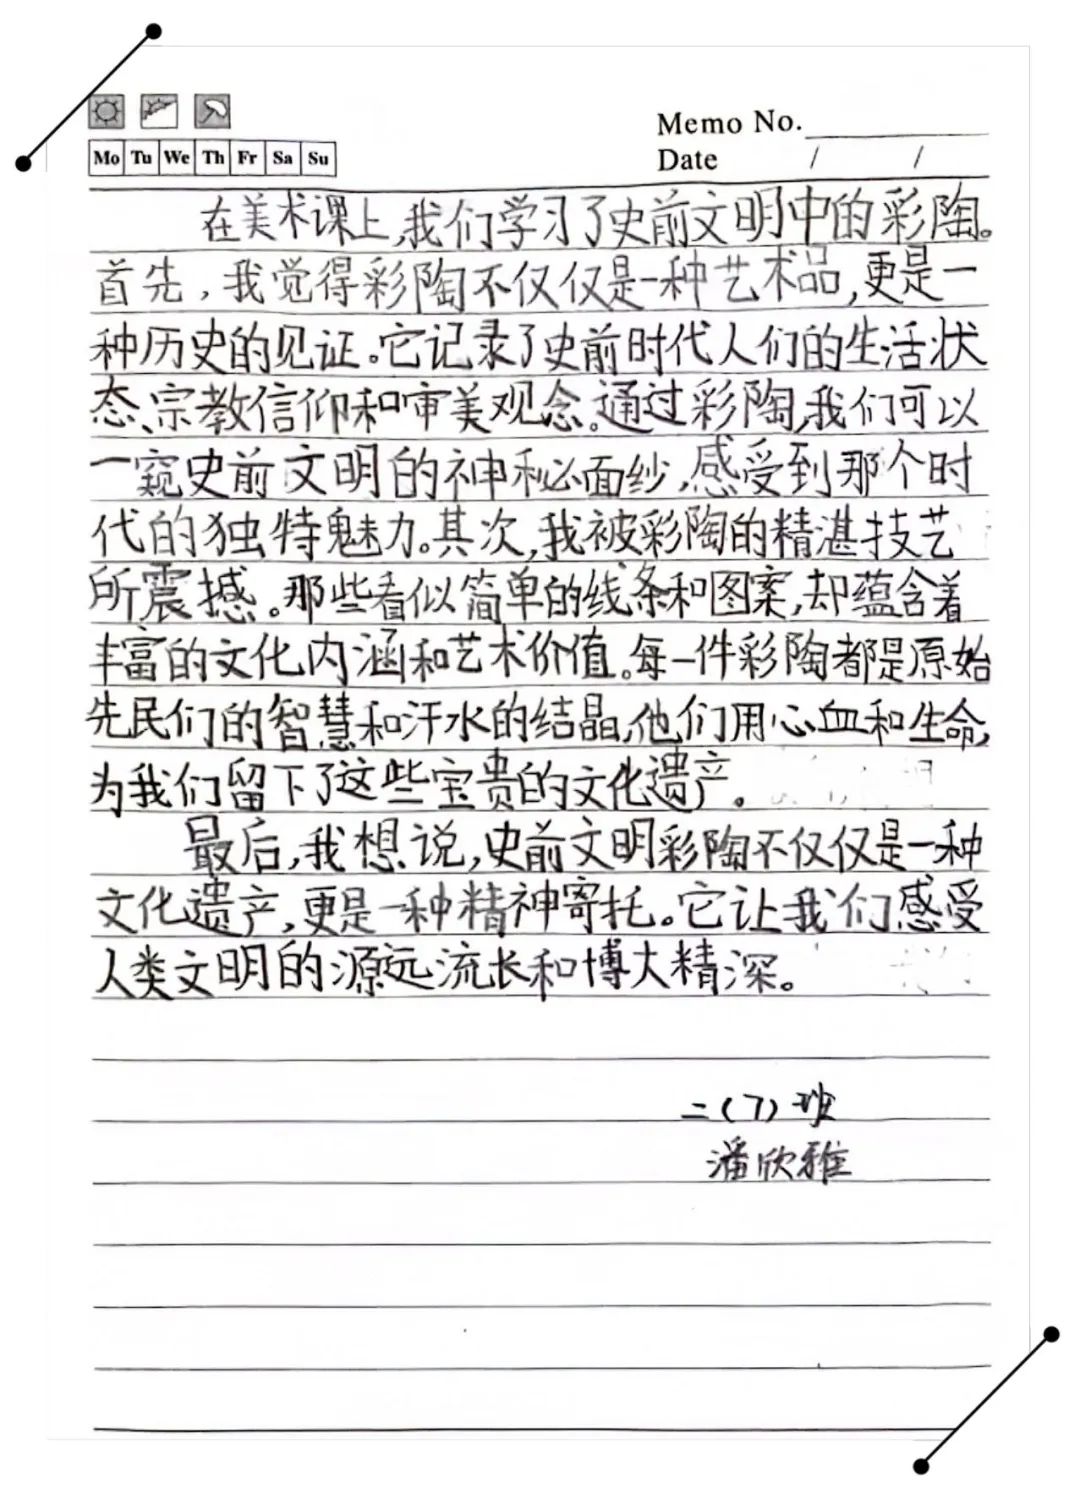 Memo No.
Mo Tu We Th Fr Sa Su
Date / /
在美术课上,我们学习了史前文明中的彩陶。
首先,我觉得彩陶不仅仅是一种艺术品,更是一
种历史的见证。它记录了史前时代人们的生活状
态、宗教信仰和审美观念。通过彩陶,我们可以
一窥史前文明的神秘面纱,感受到那个时
代的独特魅力。其次,我被彩陶的精湛技艺
所震撼。那些看似简单的线条和图案,却蕴含着
丰富的文化内涵和艺术价值。每一件彩陶都是原始
先民们的智慧和汗水的结晶,他们用心血和生命,
为我们留下了这些宝贵的文化遗产。
最后,我想说,史前文明彩陶不仅仅是一种
文化遗产,更是一种精神寄托。它让我们感受
人类文明的源远流长和博大精深。
二(7)班
潘欣雅